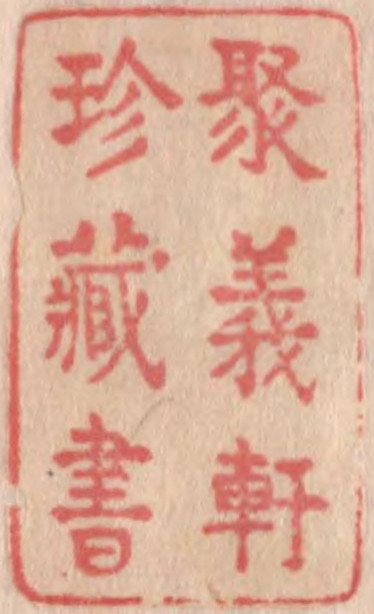 聚義軒
珍藏書